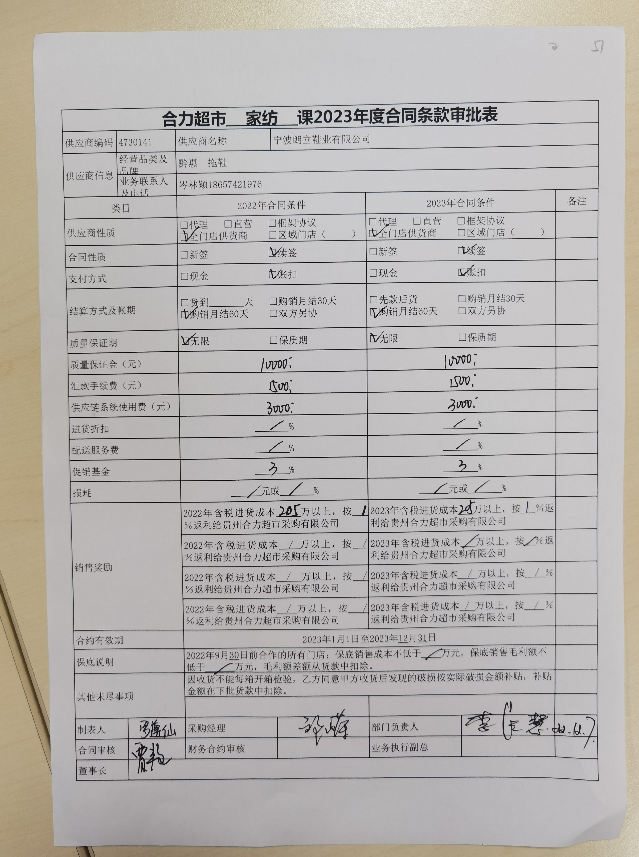 合力超市 家纺 课2023年度合同条款审批表
供应商编码 4730141 供应商名称 宁波朗立鞋业有限公司
供应商信息 经营品类及品牌 拖鞋
业务联系人及电话 岑林颖18657421976
类目 2022年合同条件 2023年合同条件 备注
供应商性质 □代理 □直营 □框架协议 □代理 □直营 □框架协议
☑全门店供货商 □区域门店（ ） ☑全门店供货商 □区域门店（ ）
合同性质 □新签 ☑续签 □新签 ☑续签
支付方式 □现金 ☑账扣 □现金 ☑账扣
结算方式及帐期 □货到 天 □购销月结30天 □先款后货 □购销月结30天
☑购销月结60天 □双方另协 ☑购销月结60天 □双方另协
质量保证期 ☑无限 □保质期 ☑无限 □保质期
质量保证金（元） 10000 10000
汇款手续费（元） 1500 1500
供应链系统使用费（元） 3000 3000
进货折扣 / % / %
配送服务费 / % / %
促销基金 3 % 3 %
损耗 / 元或 / % / 元或 / %
销售奖励 2022年含税进货成本 205 万以上，按 1 %返利给贵州合力超市采购有限公司 2023年含税进货成本 205 万以上，按 1 %返利给贵州合力超市采购有限公司
2022年含税进货成本 / 万以上，按 / %返利给贵州合力超市采购有限公司 2023年含税进货成本 / 万以上，按 / %返利给贵州合力超市采购有限公司
2022年含税进货成本 / 万以上，按 / %返利给贵州合力超市采购有限公司 2023年含税进货成本 / 万以上，按 / %返利给贵州合力超市采购有限公司
2022年含税进货成本 / 万以上，按 / %返利给贵州合力超市采购有限公司 2023年含税进货成本 / 万以上，按 / %返利给贵州合力超市采购有限公司
合约有效期 2023年1月1日至2023年12月31日
保底说明 2022年9月30日前合作的所有门店：保底销售成本不低于 / 万元，保底销售毛利额不
低于 / 万元，毛利额差额从货款中扣除。
其他未尽事项 因收货不能每箱开箱检验，乙方同意甲方收货后发现的破损按实际破损金额补贴，补贴
金额在下批货款中扣除。
制表人 采购经理 部门负责人 李
合同审核 财务合约审核 业务执行副总
董事长